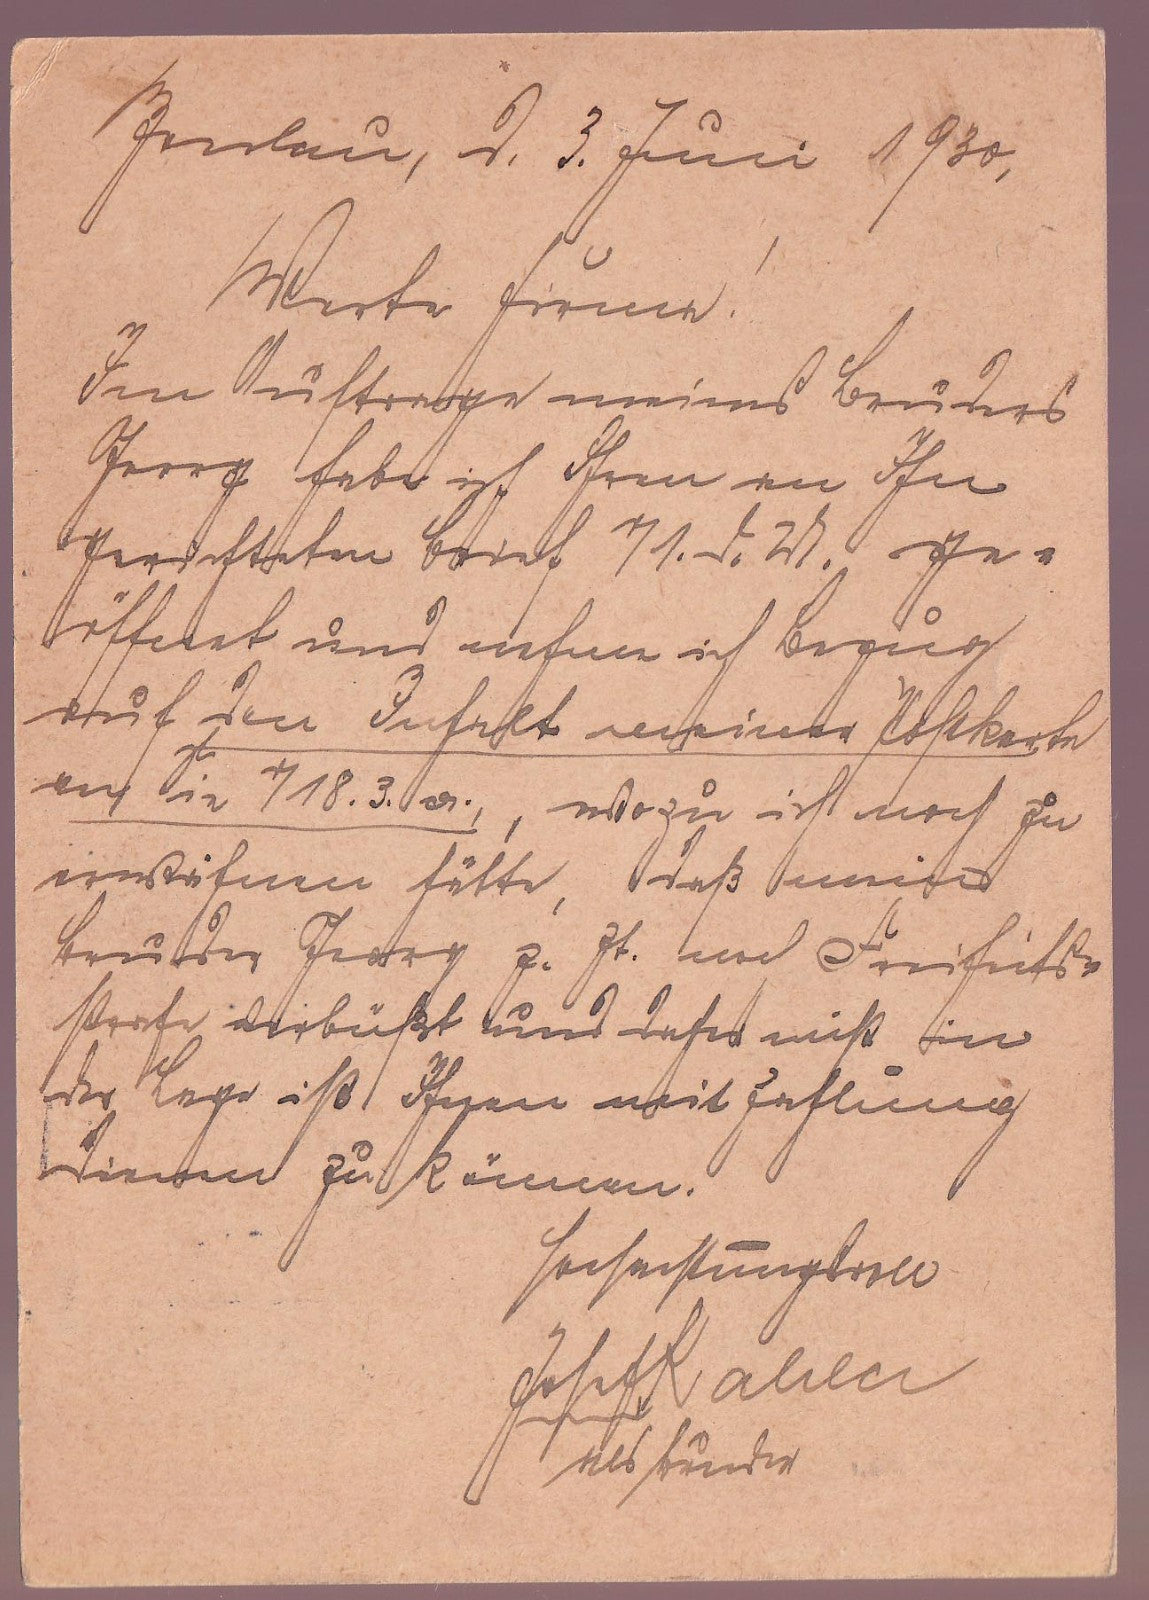 d. 3. Juni 1930,
Werte Firma!
Im Auftrage meines Bruders
Georg habe ich Ihren an Ihn
gerichteten Brief v. 1. d. M. ge-
öffnet und nehme ich Bezug
auf den Inhalt meiner Postkarte
an Sie v. 18. 3. cr., wozu ich noch zu
erwähnen hätte, daß mein
Bruder Georg z. Zt. noch Freiheits-
strafe verbüßt und daher nicht in
der Lage ist Ihnen mit Zahlung
dienen zu können.
Hochachtungsvoll
Josef
als